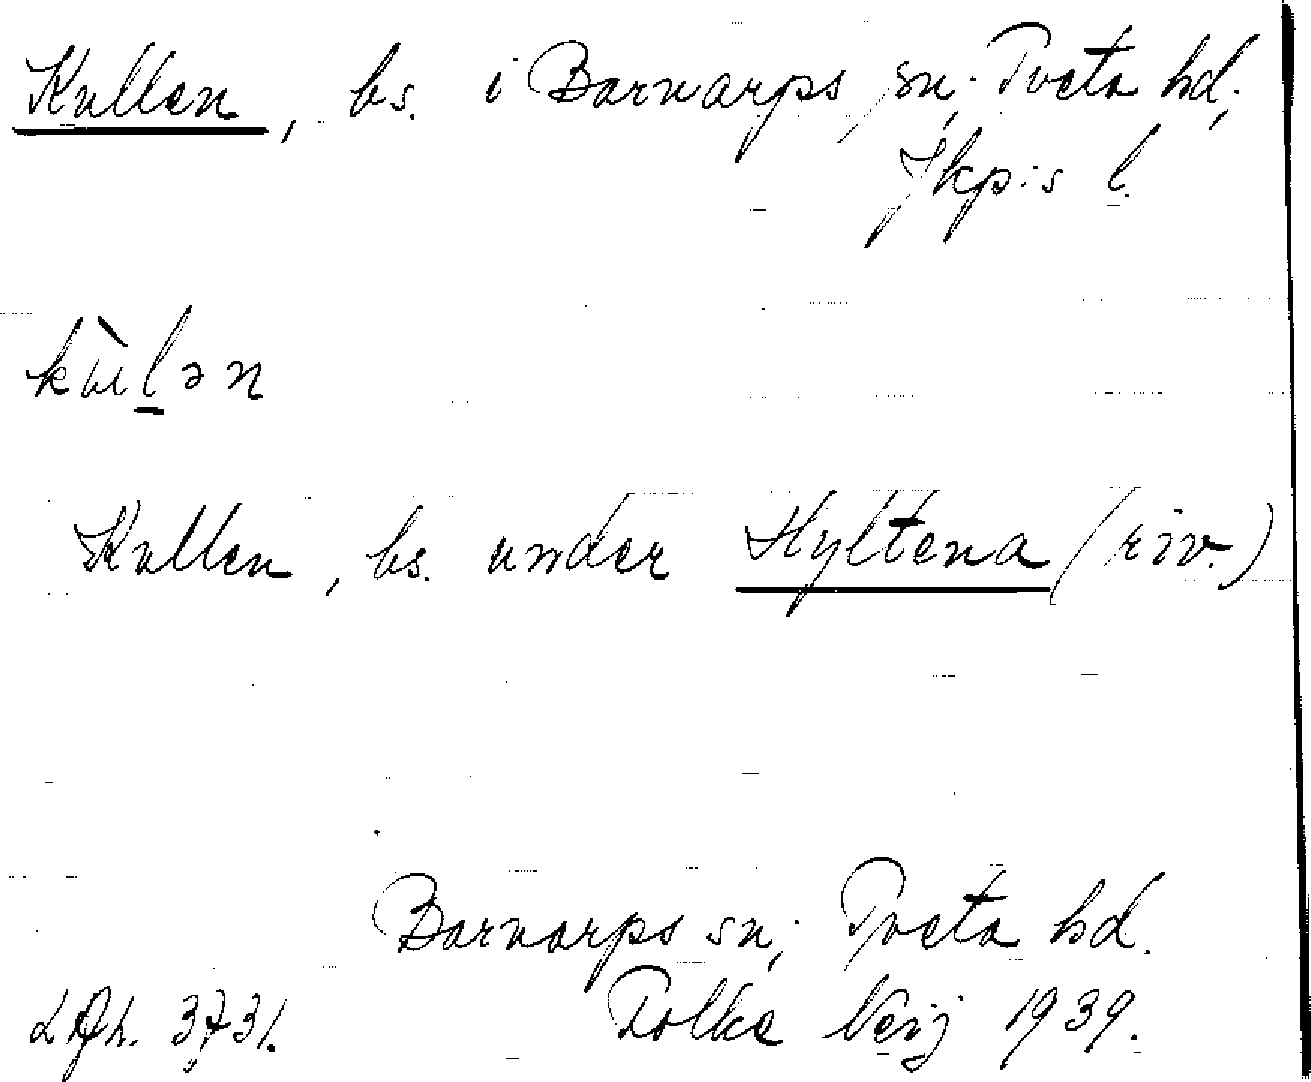 Kullen, bs. i Barnarps sn; Tveta hd;
Jkp:s l.
kùlən
Kullen, bs. under Hyltena (riv.)
Barnarps sn; Tveta hd.
Folke Neij 1939.